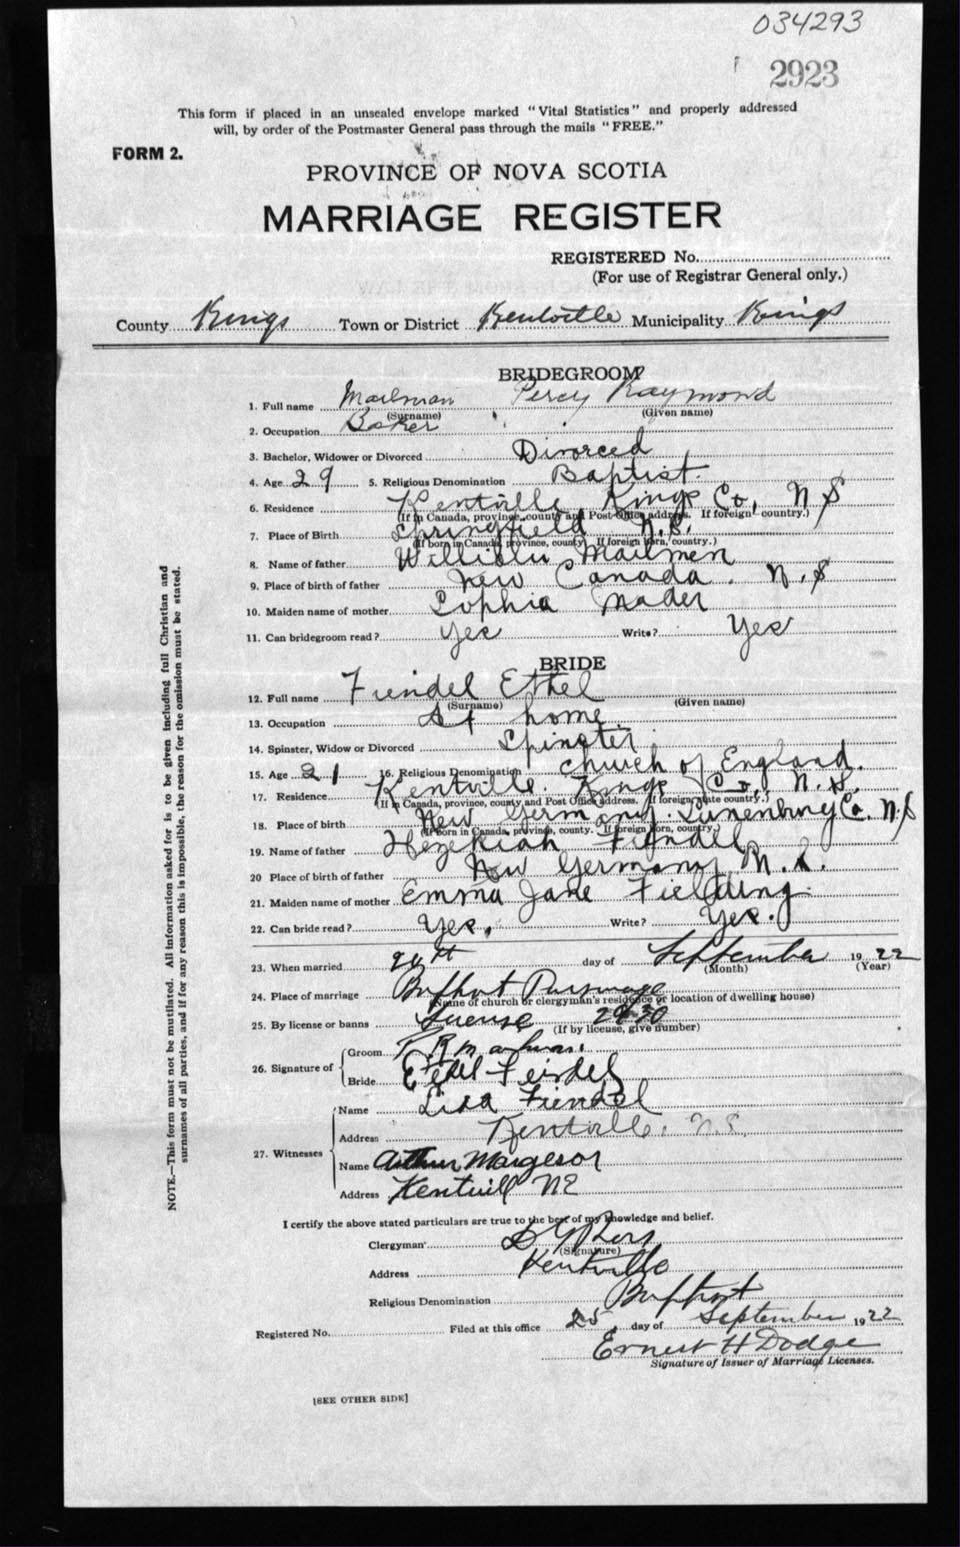 034293
2923
This form if placed in an unsealed envelope marked "Vital Statistics" and properly addressed
will, by order of the Postmaster General pass through the mails "FREE."
FORM 2.
PROVINCE OF NOVA SCOTIA
MARRIAGE REGISTER
REGISTERED No.
(For use of Registrar General only.)
County Kings Town or District Kentville Municipality Kings
BRIDEGROOM
1. Full name Mailman Percy Raymond
(Surname) (Given name)
2. Occupation Baker
3. Bachelor, Widower or Divorced Divorced
4. Age 29 5. Religious Denomination Baptist.
6. Residence Kentville Kings Co, N S
(If in Canada, province, county and Post Office address. If foreign country.)
7. Place of Birth Springfield N.S.
(If born in Canada, province, county. If foreign born, country.)
8. Name of father William Mailman
9. Place of birth of father New Canada. N.S
10. Maiden name of mother Sophia Mader
11. Can bridegroom read? Yes Write? Yes
BRIDE
12. Full name Fiendel Ethel
(Surname) (Given name)
13. Occupation At home.
14. Spinster, Widow or Divorced Spinster
15. Age 21 16. Religious Denomination Church of England.
17. Residence Kentville. Kings Co., N.S.
(If in Canada, province, county and Post Office address. If foreign, state country.)
18. Place of birth New Germany. Lunenburg Co. N.S
(If born in Canada, province, county. If foreign born, country.)
19. Name of father Hezekiah Fiendel
20 Place of birth of father New Germany N.S.
21. Maiden name of mother Emma Jane Fielding
22. Can bride read? Yes. Write? Yes.
23. When married day of September 1922
(Month) (Year)
24. Place of marriage Baptist Parsonage
(Name of church or clergyman's residence or location of dwelling house)
25. By license or banns License
(If by license, give number)
26. Signature of
Groom
Bride Ethel Feindel
27. Witnesses
Name Lida Fiendel
Address Kentville. N.S.
Name Arthur Margeson
Address Kentvill NS
I certify the above stated particulars are true to the best of my knowledge and belief.
Clergyman
(Signature)
Address Kentville
Religious Denomination Baptist
Registered No. Filed at this office 25, day of September 1922
Ernest H Dodge
Signature of Issuer of Marriage Licenses.
[SEE OTHER SIDE]
NOTE.—This form must not be mutilated. All information asked for is to be given including full Christian and
surnames of all parties, and if for any reason this is impossible, the reason for the omission must be stated.